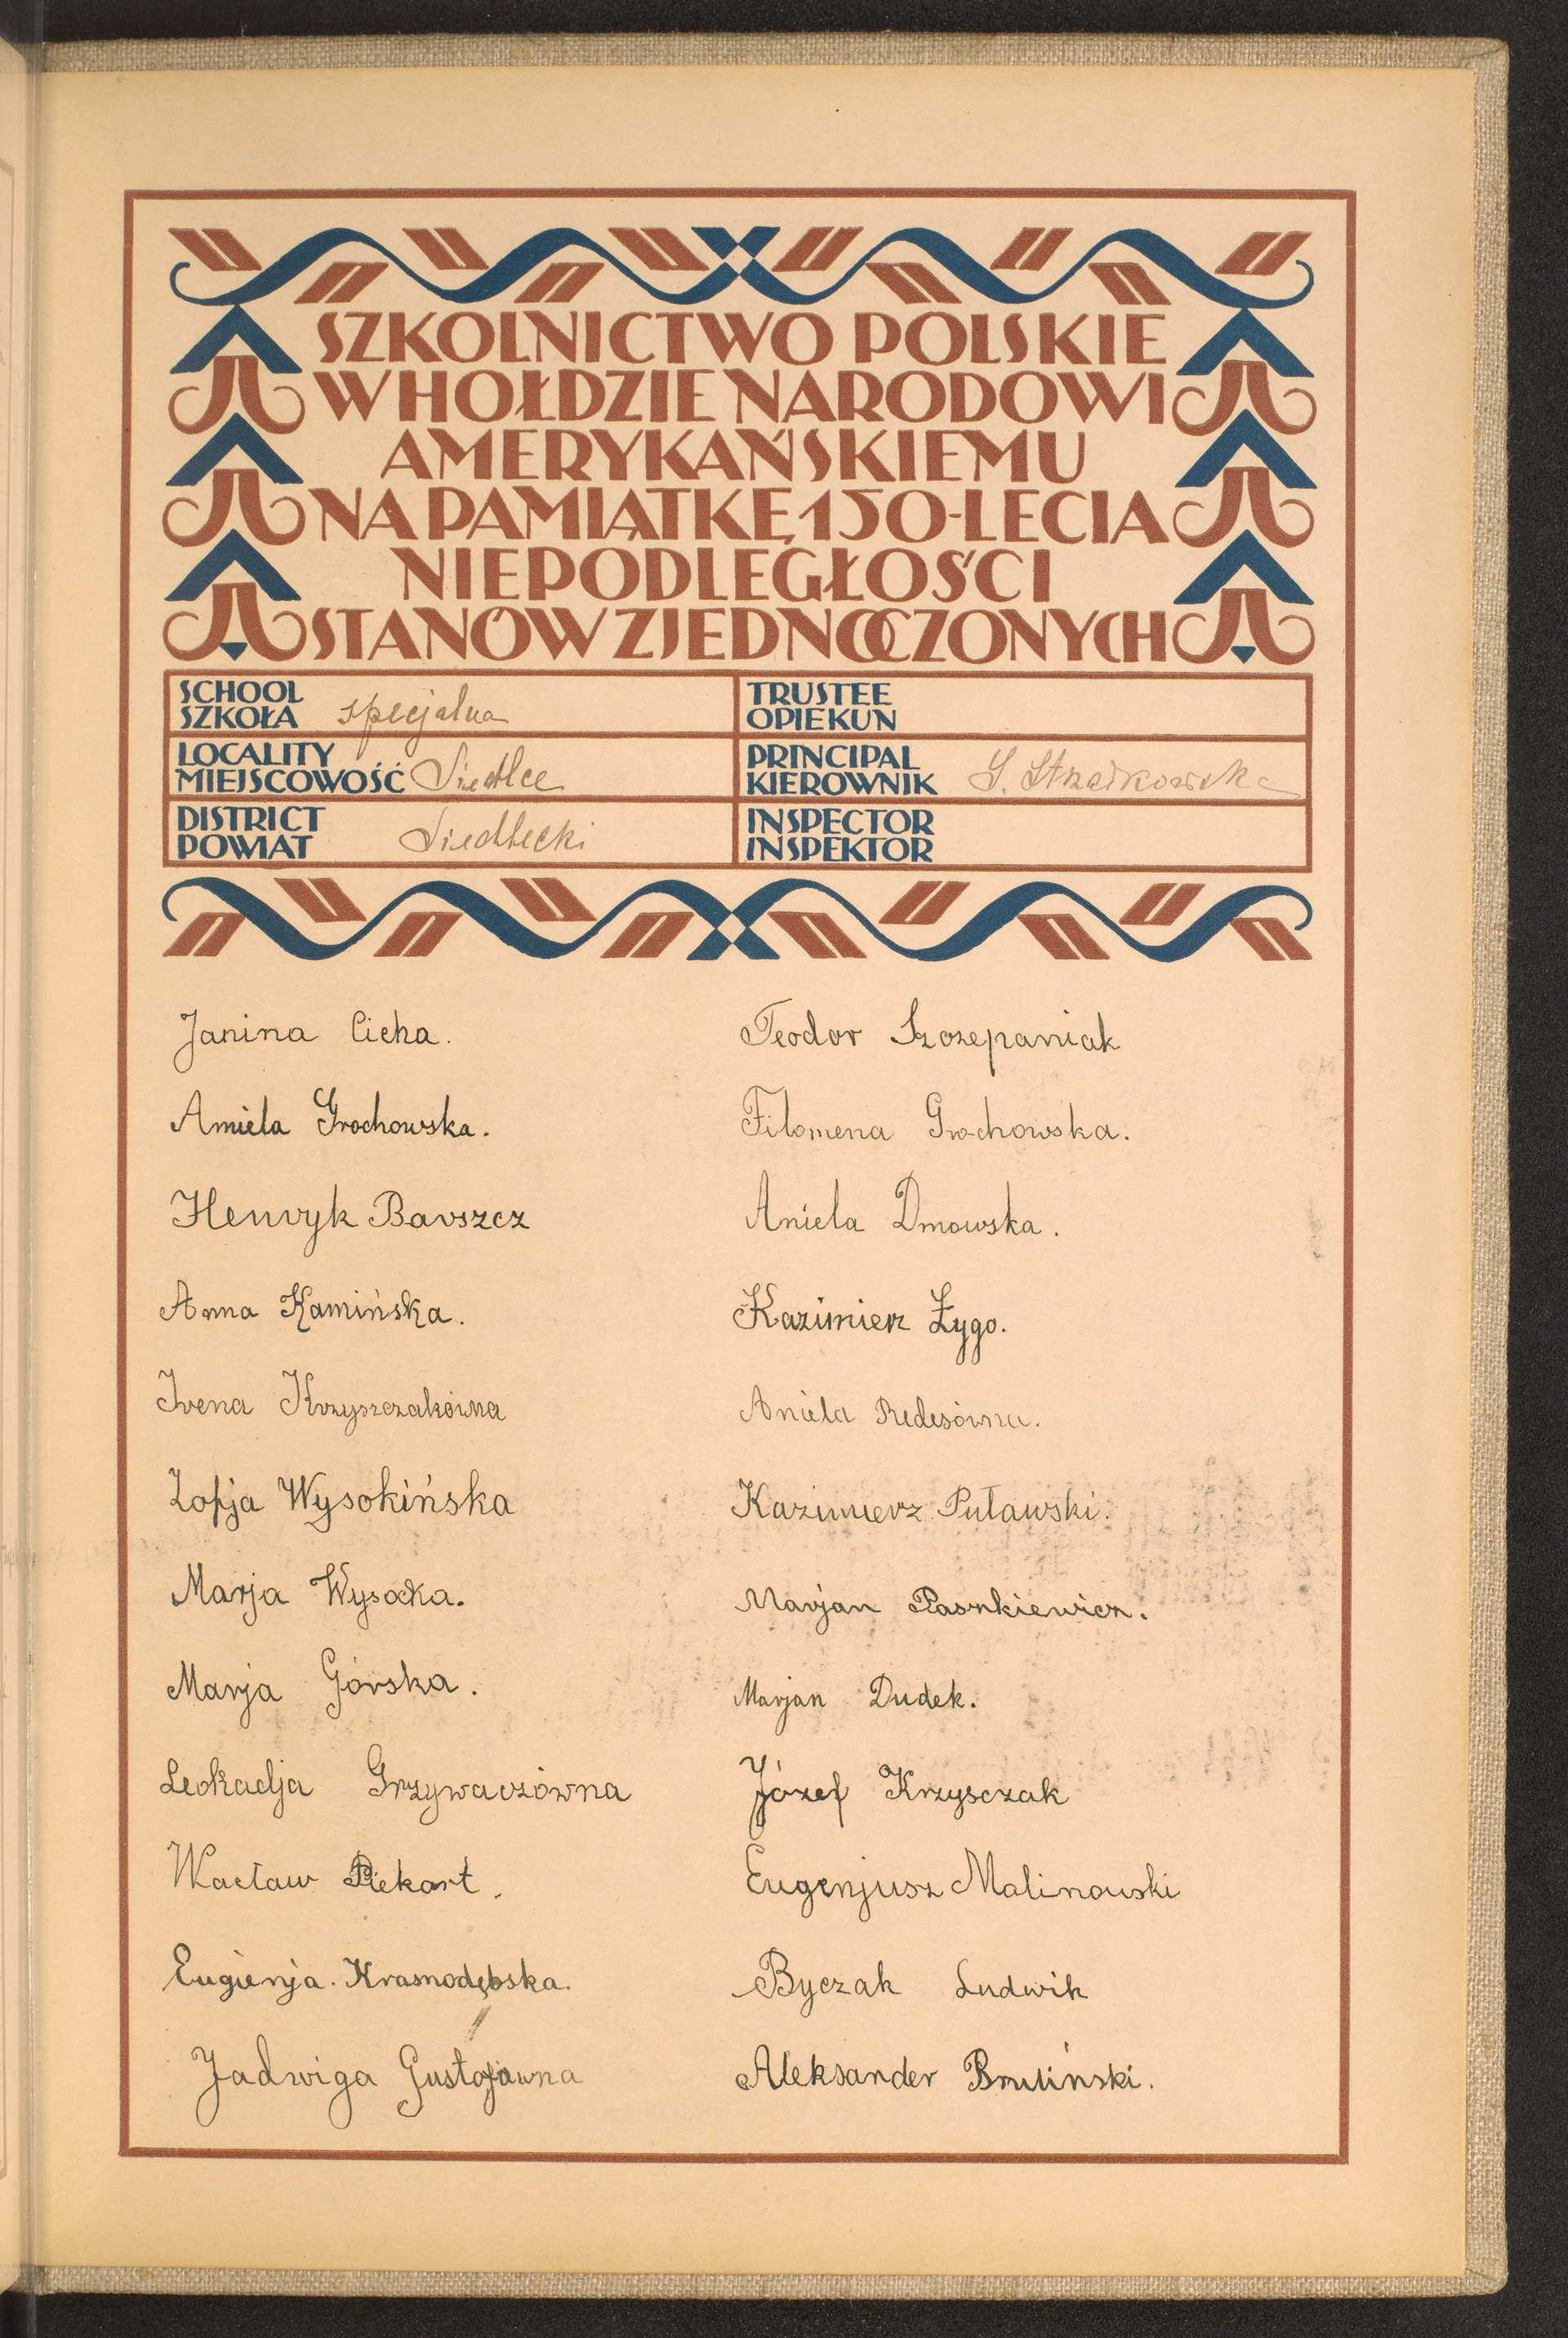 SZKOLNICTWO POLSKIE
W HOŁDZIE NARODOWI
AMERYKAŃSKIEMU
NA PAMIĄTKĘ 150-LECIA
NIEPODLEGŁOŚCI
STANÓW ZJEDNOCZONYCH
SCHOOL
SZKOŁA specjalna
LOCALITY
MIEJSCOWOŚĆ Siedlce
DISTRICT
POWIAT Siedlecki
TRUSTEE
OPIEKUN
PRINCIPAL
KIEROWNIK S.
INSPECTOR
INSPEKTOR
Janina Cicha.
Amiela Grochowska.
Henryk Barszcz
Anna Kamińska.
Irena Krzyszczakówna
Zofja Wysokińska
Marja Wysocka.
Marja Górska.
Leokadja Grzywaczówna
Wacław Piekart.
Eugienja. Krasnodębska.
Jadwiga
Teodor Szczepaniak
Filomena Grochowska.
Aniela Dmowska.
Kazimierz Żygo.
Aniela Redesówna.
Kazimierz Puławski.
Marjan Pasnkiewicz.
Marjan Dudek.
Józef Krzysczak
Eugenjusz Malinowski
Byczak Ludwik
Aleksander Bruliński.